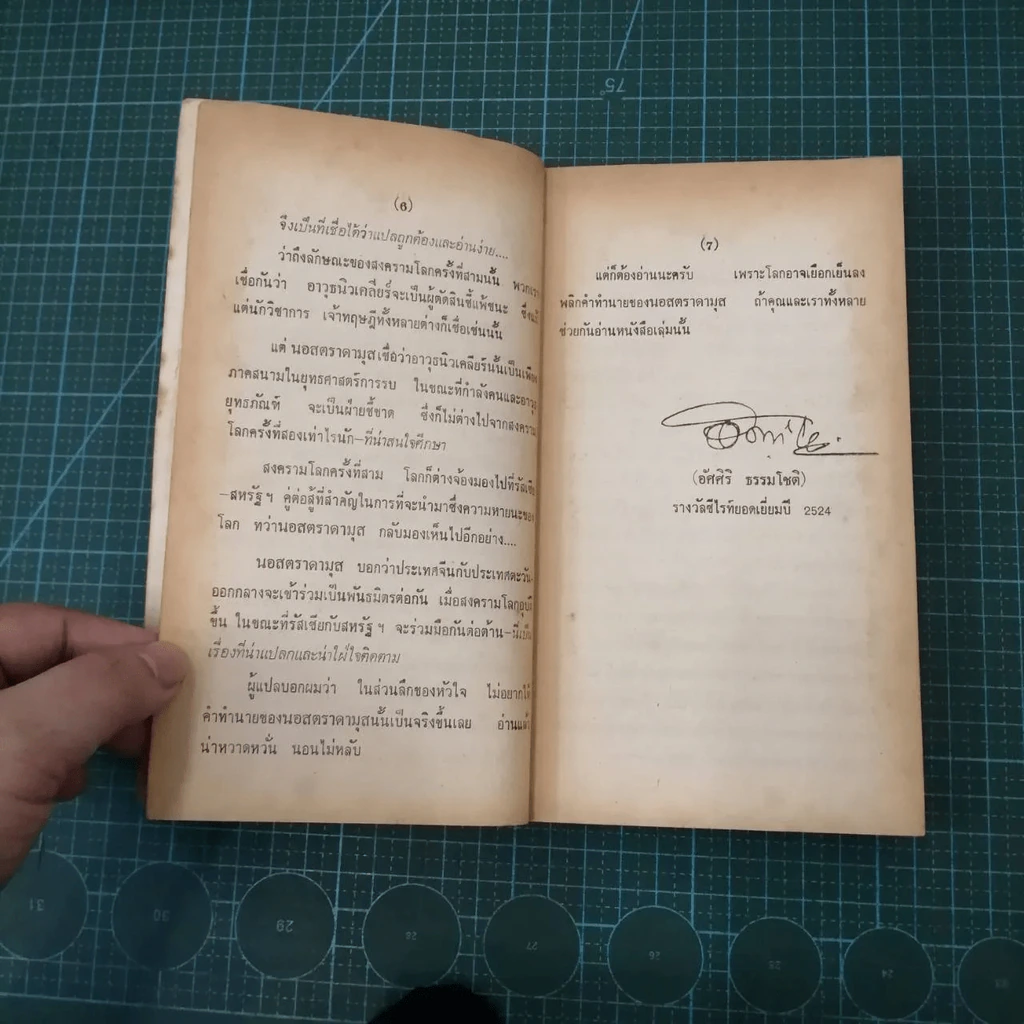 (6)
จึงเป็นที่เชื่อได้ว่าแปลถูกต้องและอ่านง่าย....
ว่าถึงลักษณะของสงครามโลกครั้งที่สามนั้น พวกเรา
เชื่อกันว่า อาวุธนิวเคลียร์จะเป็นผู้ตัดสินชี้แพ้ชนะ
แต่นักวิชาการ เจ้าทฤษฎีทั้งหลายต่างก็เชื่อเช่นนั้น
แต่ นอสตราดามุสเชื่อว่าอาวุธนิวเคลียร์นั้นเป็นเพียง
ภาคสนามในยุทธศาสตร์การรบ ในขณะที่กำลังคนและอาวุธ
ยุทธภัณฑ์ จะเป็นฝ่ายชี้ขาด ซึ่งก็ไม่ต่างไปจากสงคราม
โลกครั้งที่สองเท่าไรนัก–ที่น่าสนใจศึกษา
สงครามโลกครั้งที่สาม โลกก็ต่างจ้องมองไปที่รัสเซีย
–สหรัฐฯ คู่ต่อสู้ที่สำคัญในการที่จะนำมาซึ่งความหายนะของ
โลก ทว่านอสตราดามุส กลับมองเห็นไปอีกอย่าง....
นอสตราดามุส บอกว่าประเทศจีนกับประเทศตะวัน-
ออกกลางจะเข้าร่วมเป็นพันธมิตรต่อกัน เมื่อสงครามโลกอุบัติ
ขึ้น ในขณะที่รัสเซียกับสหรัฐฯ จะร่วมมือกันต่อต้าน–นี่เป็น
เรื่องที่น่าแปลกและน่าใฝ่ใจติดตาม
ผู้แปลบอกผมว่า ในส่วนลึกของหัวใจ ไม่อยากให้
คำทำนายของนอสตราดามุสนั้นเป็นจริงขึ้นเลย อ่านแล้ว
น่าหวาดหวั่น นอนไม่หลับ
(7)
แต่ก็ต้องอ่านนะครับ เพราะโลกอาจเยือกเย็นลง
พลิกคำทำนายของนอสตราดามุส ถ้าคุณและเราทั้งหลาย
ช่วยกันอ่านหนังสือเล่มนั้น
(อัศศิริ ธรรมโชติ)
รางวัลซีไรท์ยอดเยี่ยมปี 2524
75°
31
30
29
28
27
26
25
24